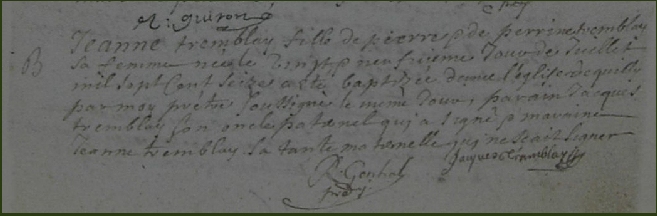 R. guiton
B Jeanne tremblay fille de pierre & de perrine tremblay
sa femme neele vingt neufieme Jour de Juillet
mil sept Cent seize a eté baptisée dans l'église de quilly
par moy pretre soussigné le même Jour, parain Jacques
tremblay son oncle paternel qui a signé & maraine
Jeanne tremblay sa tante maternelle qui ne scait signer
Jacques tramblay